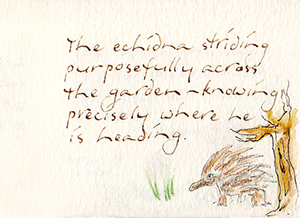 The echidna striding
purposefully across
the garden - knowing
precisely where he
is heading.